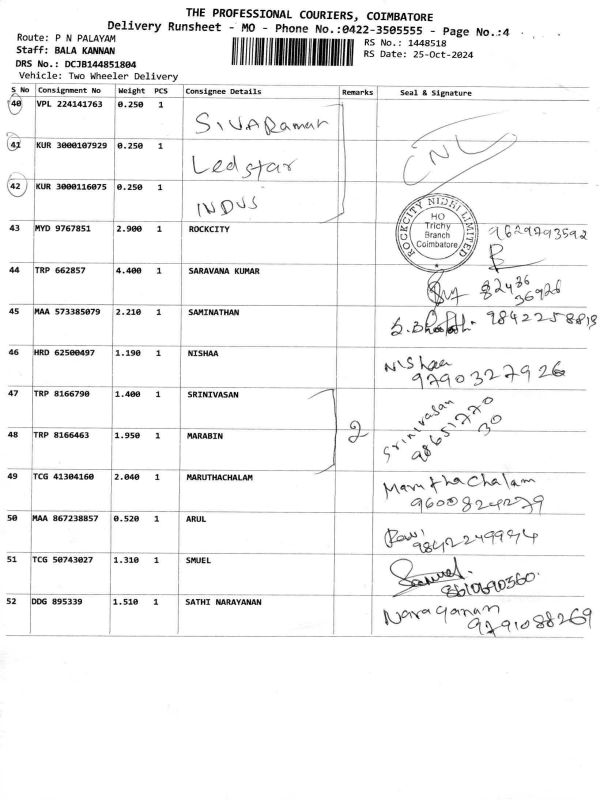 THE PROFESSIONAL COURIERS, COIMBATORE
Delivery Runsheet - MO - Phone No.:0422-3505555 - Page No.:4
Route: P N PALAYAM
RS No.: 1448518
Staff: BALA KANNAN
RS Date: 25-Oct-2024
DRS No.: DCJB144851804
Vehicle: Two Wheeler Delivery
S No Consignment No Weight PCS Consignee Details Remarks Seal & Signature
40 VPL 224141763 0.250 1 SIVARaman
41 KUR 3000107929 0.250 1 Ledstar CNL
42 KUR 3000116075 0.250 1 INDUS
43 MYD 9767851 2.900 1 ROCKCITY 9629793592
ROCKCITY NIDHI LIMITED
HO
Trichy
Branch
Coimbatore
44 TRP 662857 4.400 1 SARAVANA KUMAR 82436
36926
45 MAA 573385079 2.210 1 SAMINATHAN 9842258813
46 HRD 62500497 1.190 1 NISHAA NISHaa
9790327926
47 TRP 8166790 1.400 1 SRINIVASAN Srinivasan
98651770
30
48 TRP 8166463 1.950 1 MARABIN 2
49 TCG 41304160 2.040 1 MARUTHACHALAM Maruthachalam
9600824279
50 MAA 867238857 0.520 1 ARUL Ravi
9842249994
51 TCG 50743027 1.310 1 SMUEL Samuel.
8610690360.
52 DDG 895339 1.510 1 SATHI NARAYANAN Narayanan
9791088269